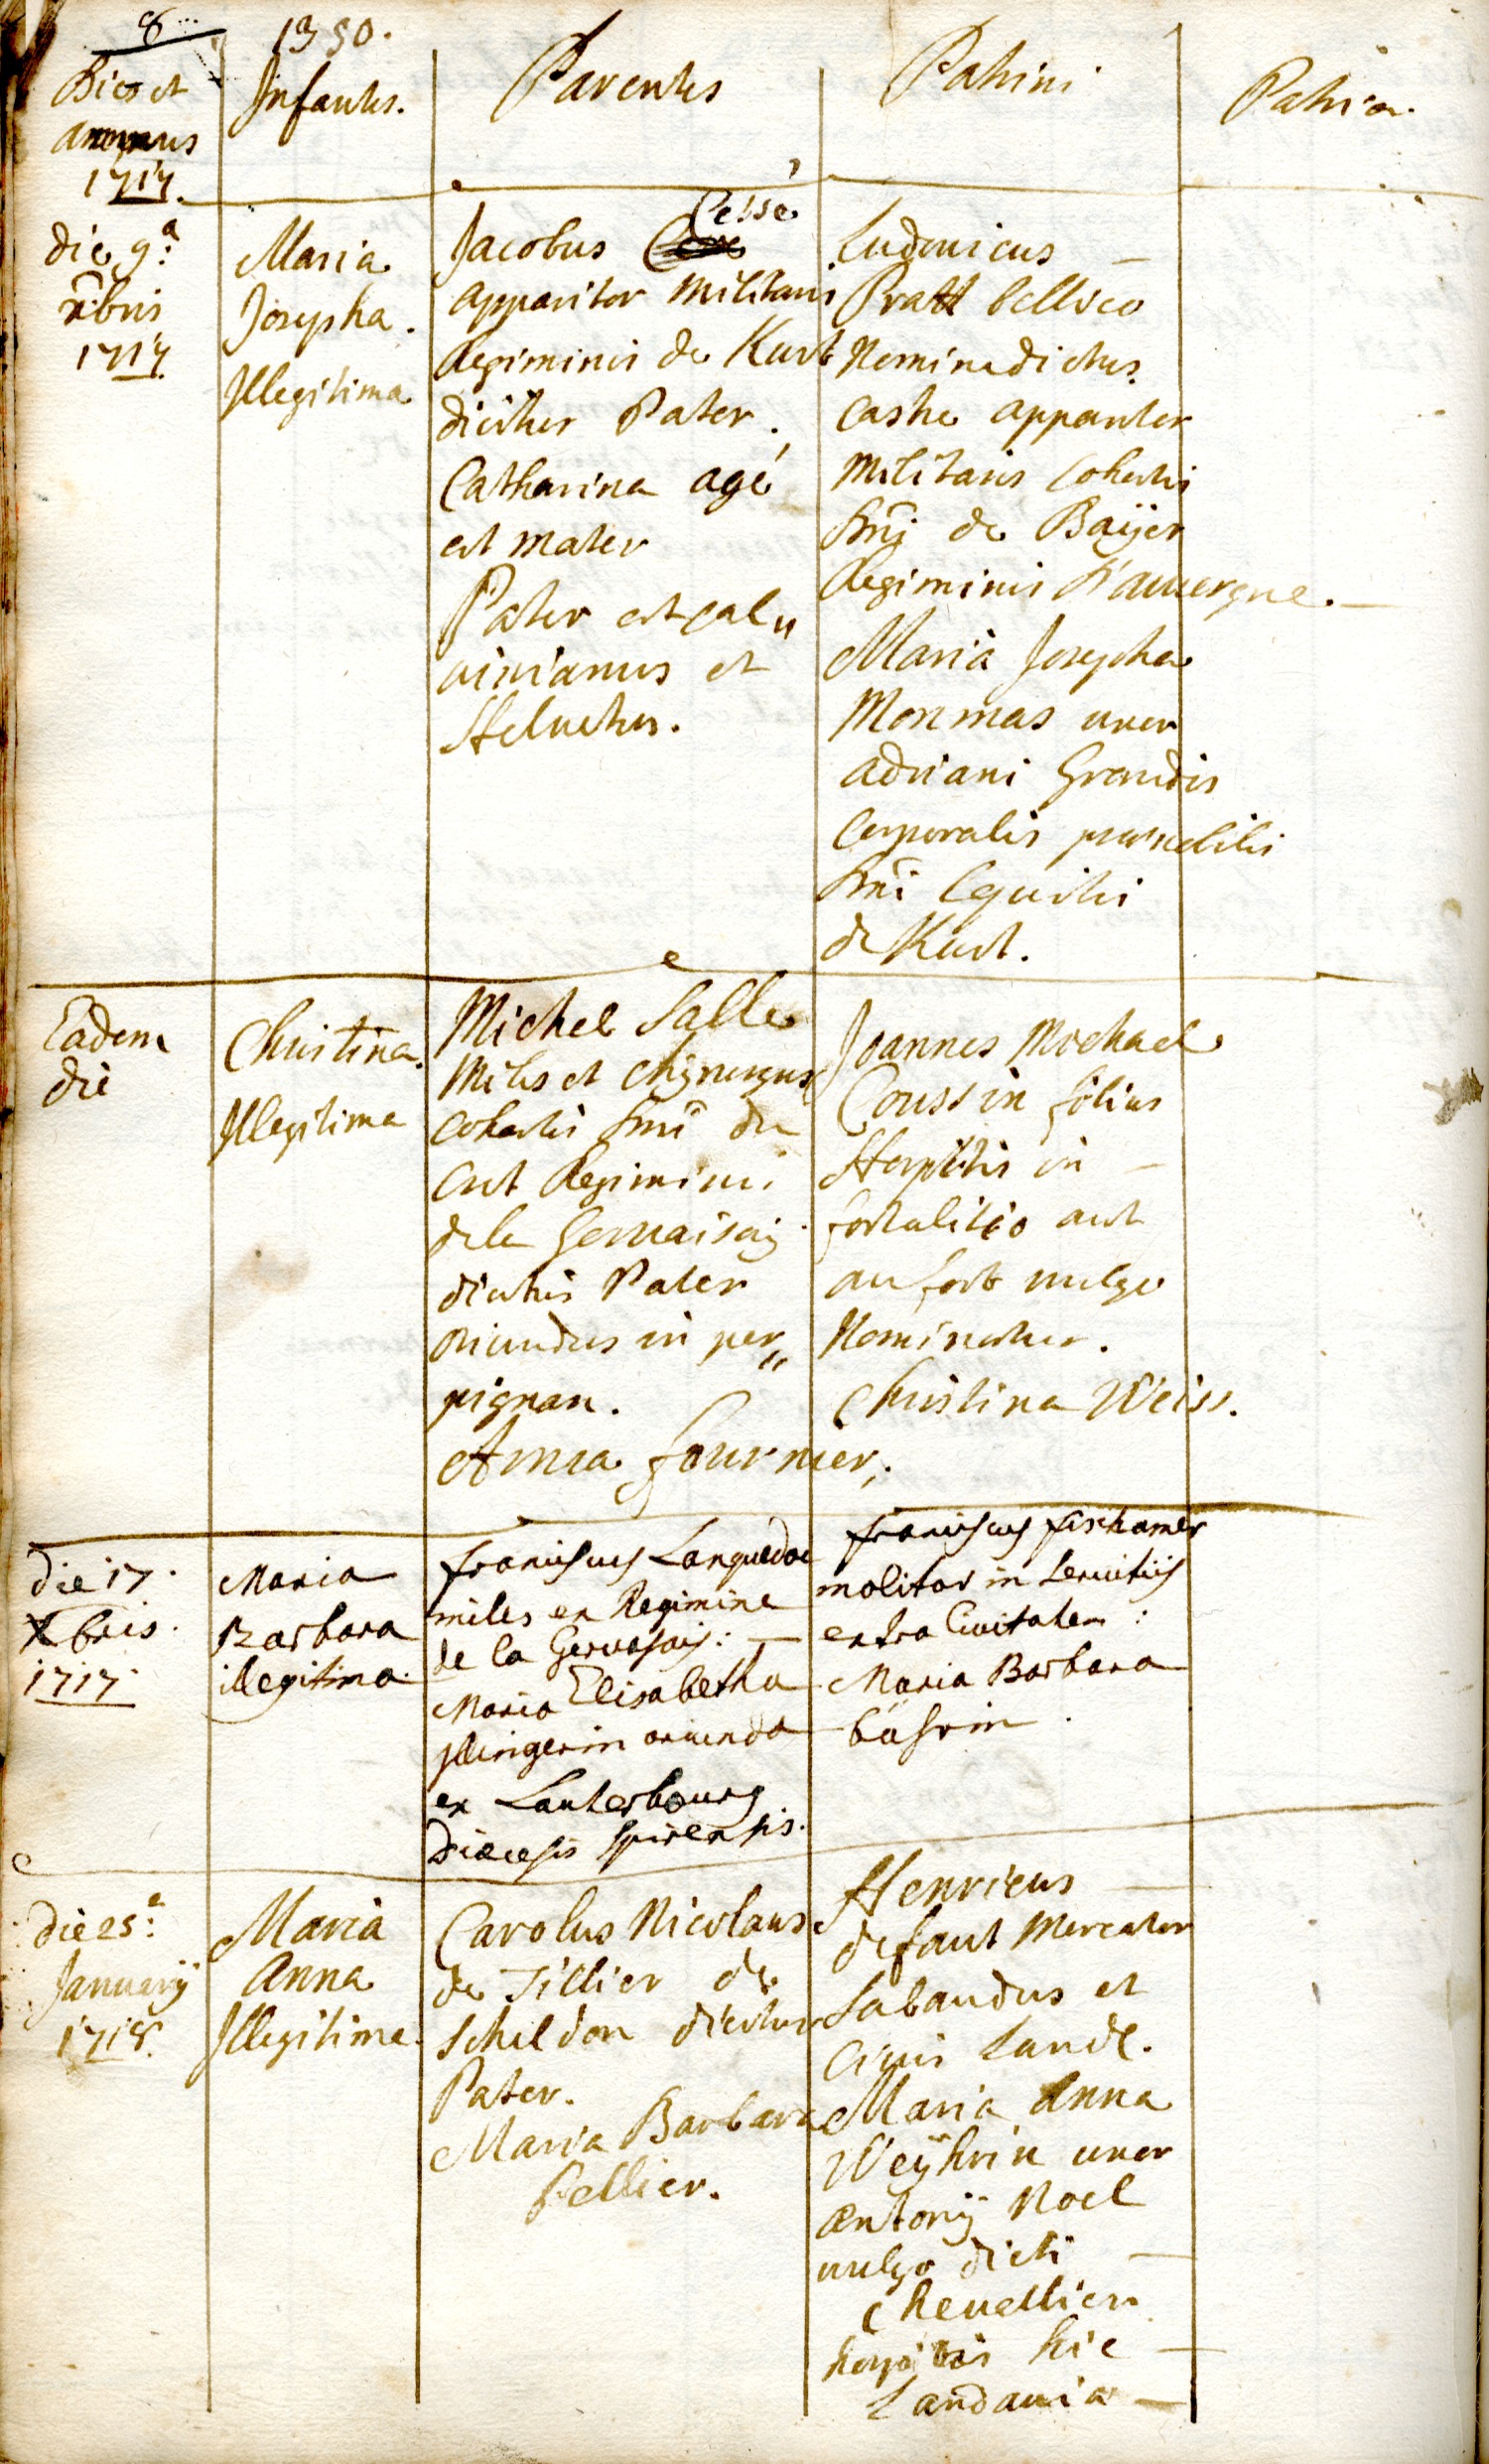 8
1350.
Dies et
annus
1717.
Infantes.
Parentes
Patrini
Patria.
die 9ª:
xbris
1717
Maria
Josepha.
Illegitima
Jacobus Cesse
apparitor militaris
Regiminis de Kart
dicitur Pater.
Catharina agé
est mater
Pater est Cal„
vinianus et
Helvetus.
Ludovicus —
Pratt bellico
Nomine dictus
Castre apparitor
militaris Cohortis
Dni de Baÿer
Regiminis D'auvergne. —
Maria Josepha
Monmas uxor
adriani Grandis
Corporalis prænobilis
Dni Equitis
de Kart.
Eadem
die
Christina.
Illegitima
Michel Salle
Miles et chyrurgus
Cohortis Dni de
Crit Regiminis
de la Gervaisaij
dictus Pater
oriundus in per„
pignan.
Anna fournier.
Joannes Michael
Coussin filius
Hospitis in —
fortalitio aut
au fort vulgo
Nominatur.
Christina Weiss.
die 17.
Xbris.
1717.
Maria
Barbara
illegitima.
franciscus Languedoc
miles ex Regimine
de la Gervasais: —
Maria Elisabetha
Illingerin oriunda
ex Lauterbourg
Diæcesis spirensis.
franciscus fischamer
molitor in servitiis
extra Civitatem:
Maria Barbara
busrin.
die 25ª:
Januarij
1718.
Maria
Anna
Illegitima.
Carolus Nicolaus
de Tillier de
Schildon dicitur
Pater.
Maria Barbara
Pellier.
Henricus —
defaut Mercator
Sabaudus et
Civis Land.
Maria Anna
Weÿhrin uxor
Antonij Noel
vulgo dicti —
Chevellier
hospitis hic —
Landavia —